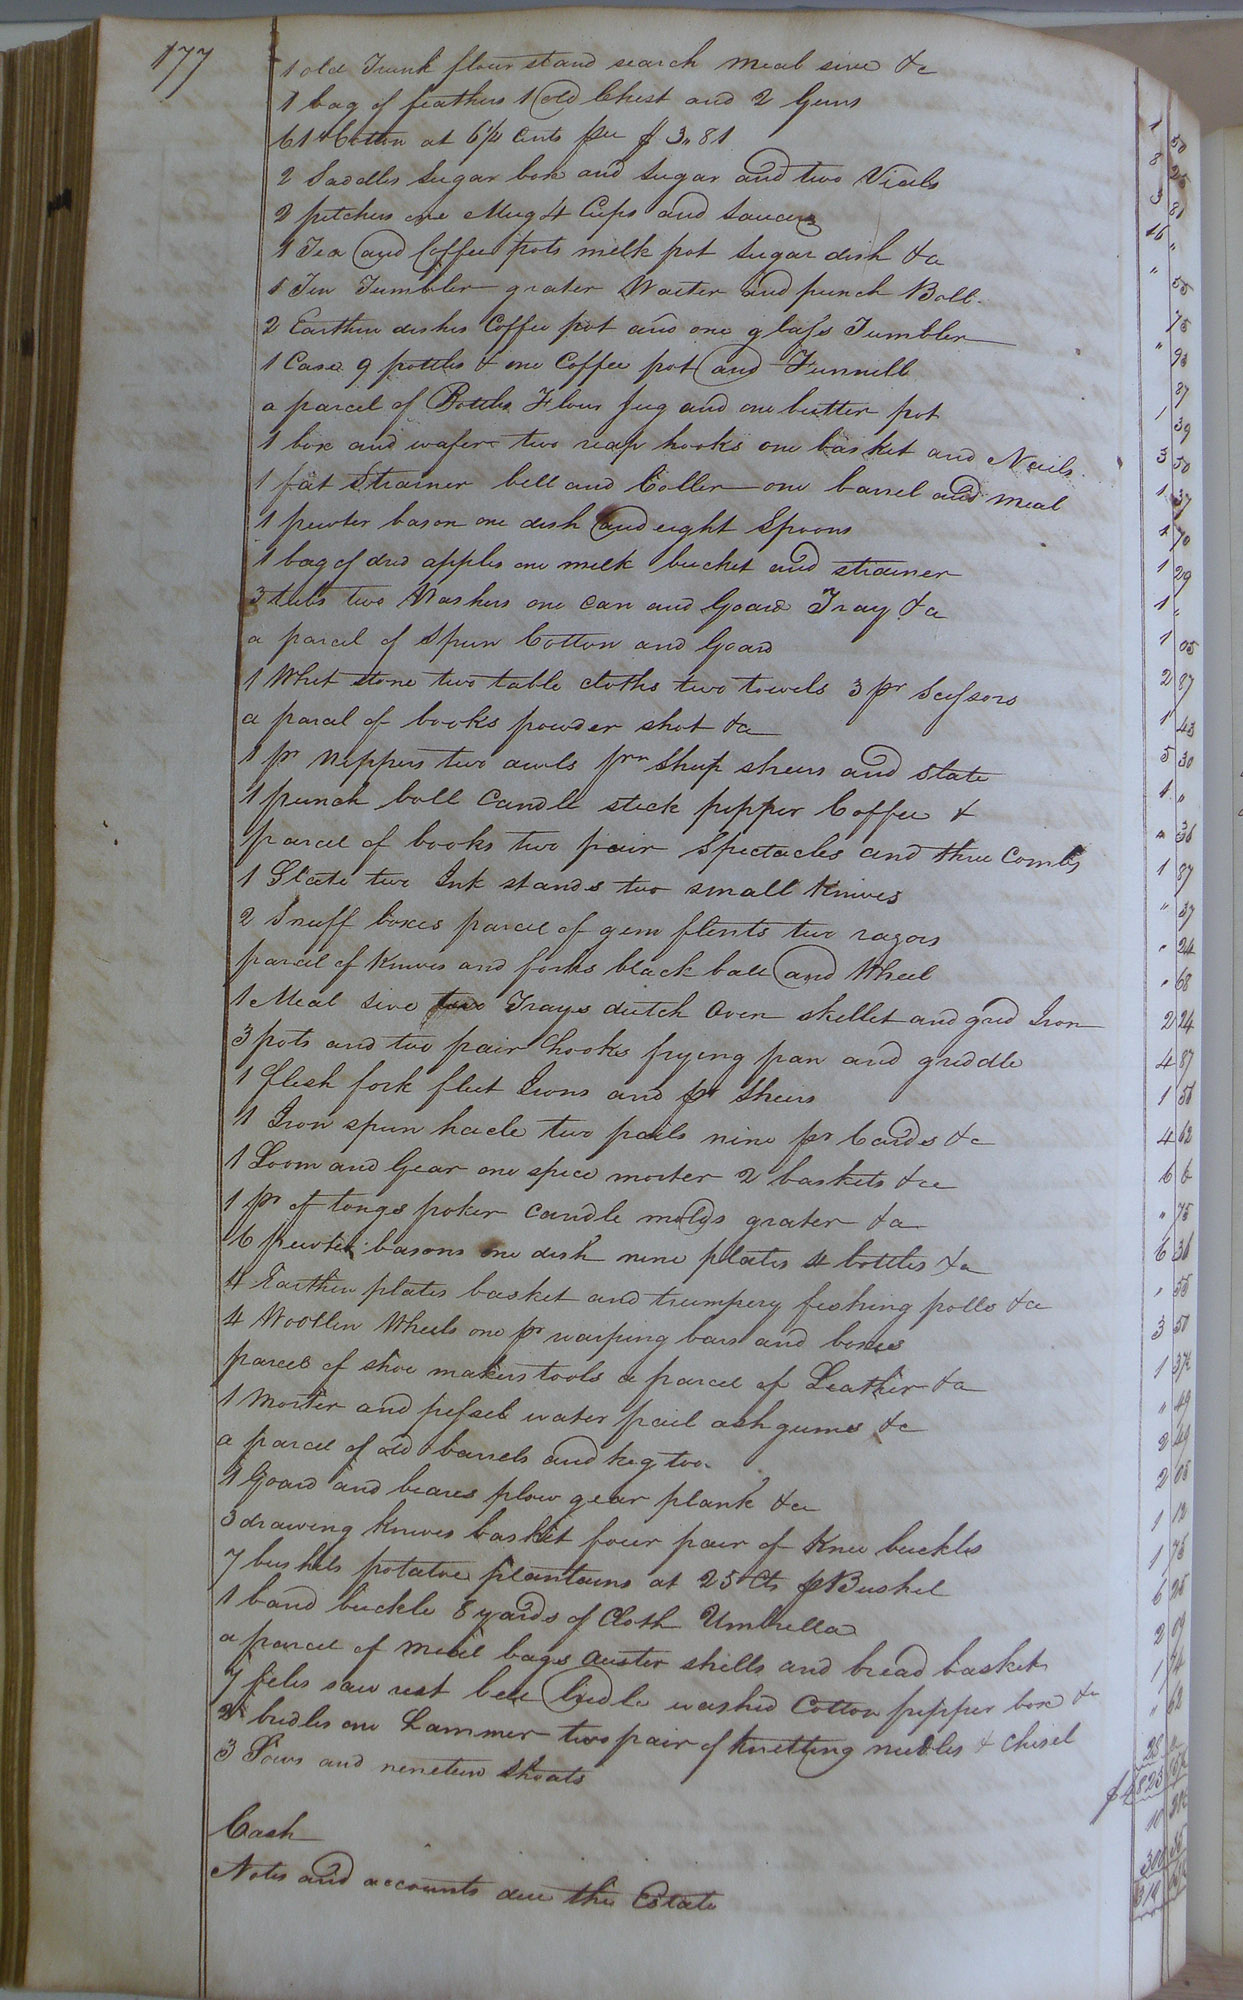 177
1 old Trunk flour stand search meal sive &c
1 bag of feathers 1 old Chest and 2 Guns
61 lb Cotton at 6 1/4 Cents per $ 3,,81
2 Saddles Sugar box and Sugar and two Vials
2 pitchers one Mug 4 Cups and Saucers
1 Tea and Coffee pots milk pot sugar dish &c
1 Tin Tumbler grater Waiter and punch Boll
2 Earthen dishes Coffee pot and one glass Tumbler
1 Case 9 pottles & one Coffee pot and Funnell
a parcel of Bottles Flour Jug and one butter pot
1 box and wafers two reap hooks one basket and Nails
1 fat Strainer bell and Coller one barrel and meal
1 pewter bason one dish and eight Spoons
1 bag of dried apples one milk bucket and strainer
3 tubs two Washers one can and Goard Tray &c
a parcel of Spun Cotton and Goard
1 Whet stone two table cloths two towels 3 pr Scissors
a parcel of books powder shot &c
1 pr Nippers two awls pr Sheep shears and slate
1 punch boll Candle stick pepper Coffee &
parcel of books two pair Spectacles and three Combs
1 Slate two Ink stands two small Knives
2 Snuff boxes parcel of gun flints two razors
parcel of Knives and forks black ball and Wheel
1 Meal sive two Trays dutch Oven skellet and grid Iron
3 pots and two pair hooks frying pan and griddle
1 flesh fork flat Irons and pr Shears
1 Iron spun hacle two pails nine pr Cards &c
1 Loom and Gear one spice morter 2 baskets &c
1 pr of tongs poker candle molds grater &c
6 pewter basons one dish nine plates 4 bottles &c
4 Earthen plates basket and trumpery fishing polls &c
4 Woollen Wheels one pr warping bars and boxes
parcel of shoe makers tools a parcel of Leather &c
1 Morter and pessel water pail ash gums &c
a parcel of old barrels and keg too
1 Goard and beans plow gear plank &c
3 drawing Knives basket four pair of Knee buckles
7 bushels potatoe plantains at 25 Cts pr Bushel
1 band buckle 8 yards of Cloth Umbrella
a parcel of meal bags auster shells and bread basket
7 files saw rest bell bridle washed Cotton pepper box &c
2 bridles one Lammer two pair of Knetting nedles & Chisel
3 Sows and nineteen Shoats
Cash
Notes and accounts due the Estate
1 50
8 25
3 81
16 "
" 55
" 75
" 93
" 37
1 39
3 50
1 37
" 70
1 29
1 "
1 05
2 87
1 43
5 30
1 "
" 36
1 87
" 37
" 24
" 68
2 24
4 87
1 51
4 62
6 6
" 75
6 36
" 55
3 50
1 37
" 49
2 49
2 05
1 12
1 75
6 25
2 09
1
" 62
28